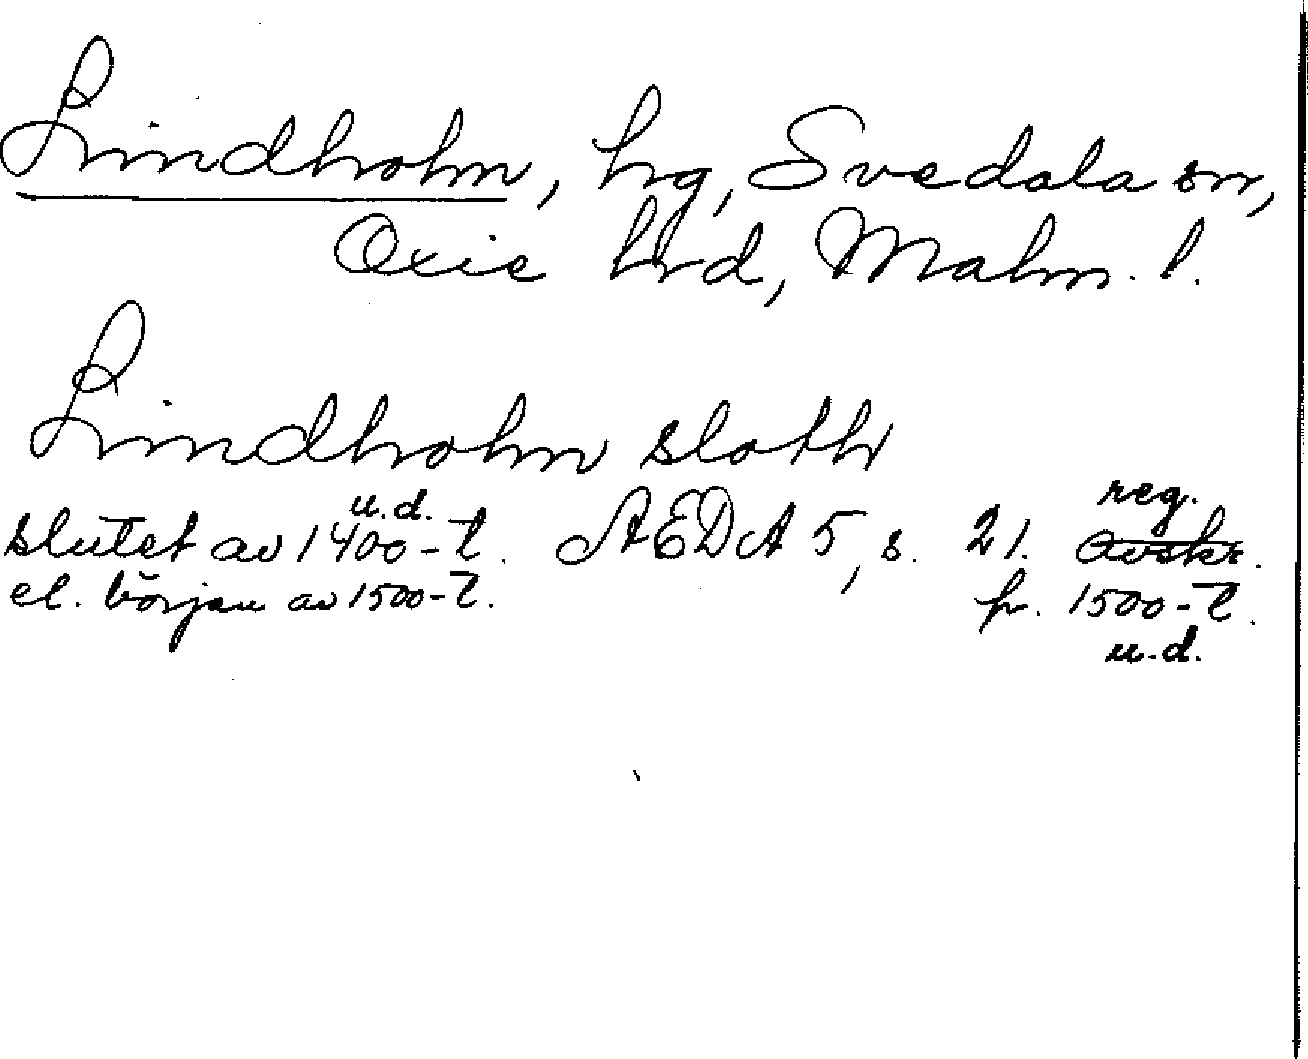 Lindholm, hg, Svedala sn,
Oxie hrd, Malm. l.
Lindholm sloth
u.d.
reg.
slutet av 1400-t. AEDA 5, s. 21. avskr.
el. början av 1500-t. fr. 1500-t.
u.d.